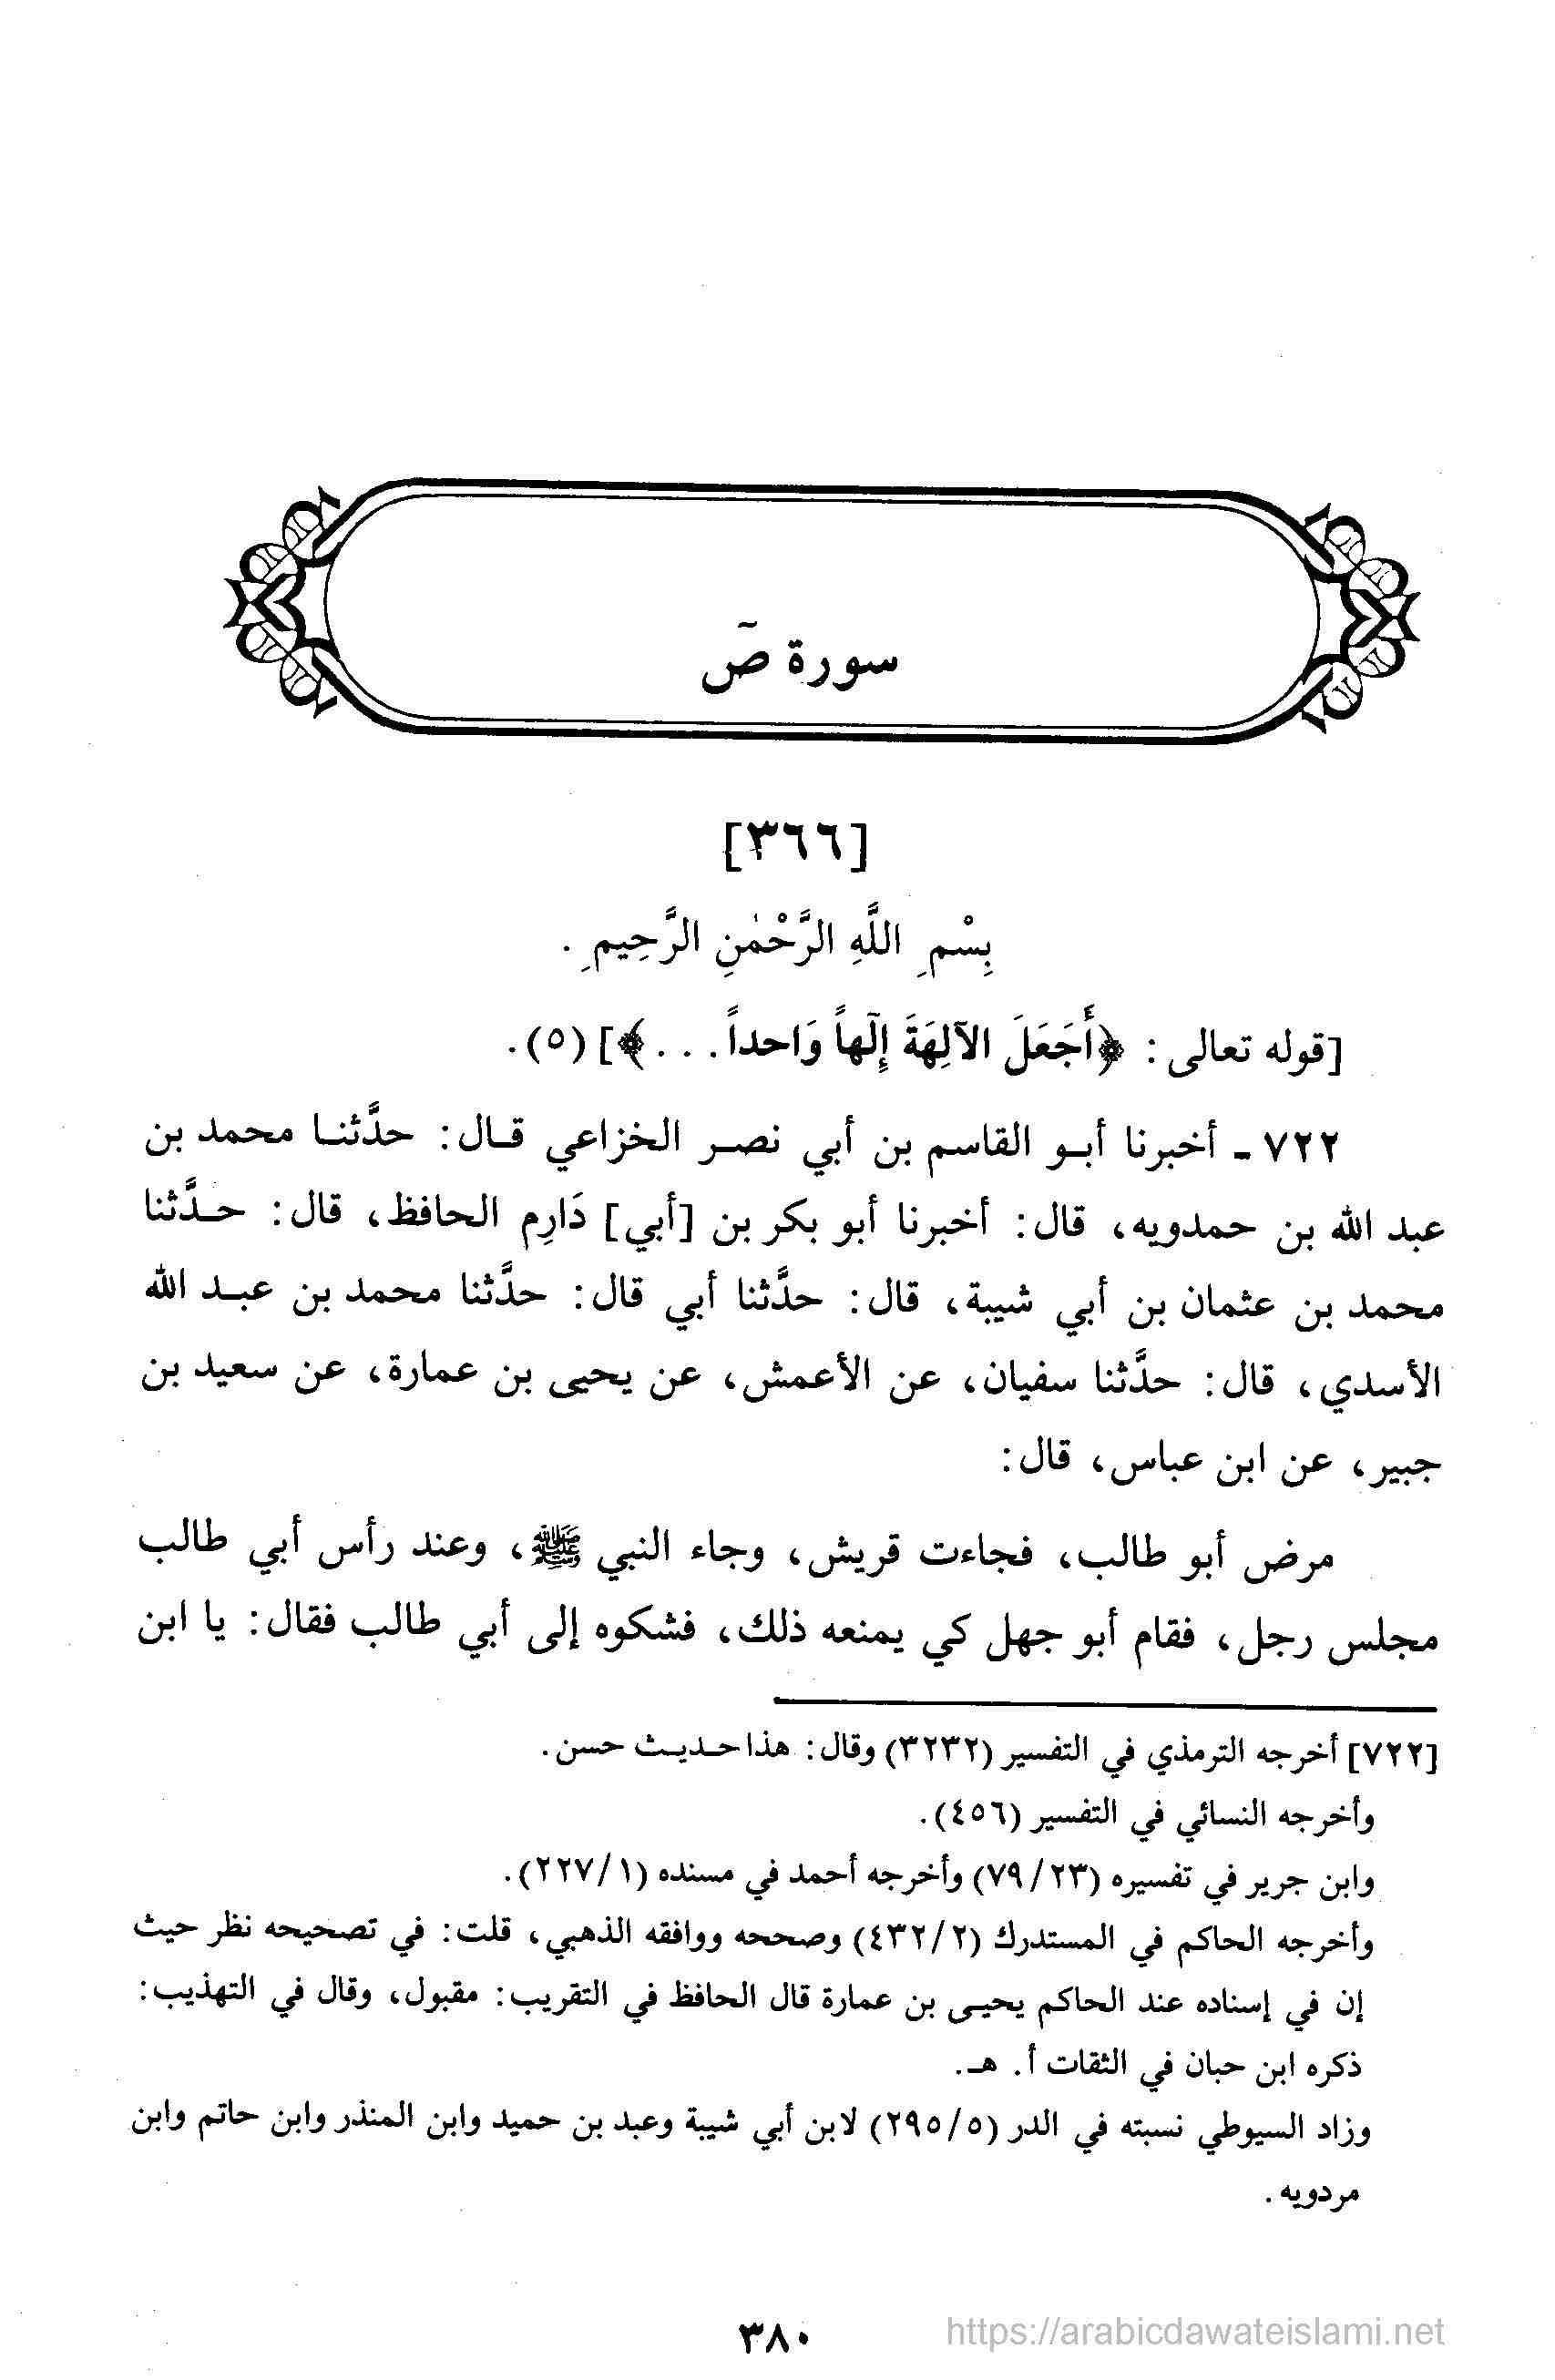 سورة صۤ
[٣٦٦]
بِسْمِ اللَّهِ الرَّحْمٰنِ الرَّحِيمِ .
[قوله تعالى: ﴿أَجَعَلَ الآلِهَةَ إِلَٓهاً وَاحداً . . .﴾] (٥).
٧٢٢ ـ أخبرنا أبو القاسم بن أبي نصر الخزاعي قال: حدَّثنا محمد بن
عبد الله بن حمدويه، قال: أخبرنا أبو بكر بن [أبي] دَارِم الحافظ، قال: حدَّثنا
محمد بن عثمان بن أبي شيبة، قال: حدَّثنا أبي قال: حدَّثنا محمد بن عبد الله
الأسدي، قال: حدَّثنا سفيان، عن الأعمش، عن يحيى بن عمارة، عن سعيد بن
جبير، عن ابن عباس، قال:
مرض أبو طالب، فجاءت قريش، وجاء النبي ﷺ، وعند رأس أبي طالب
مجلس رجل، فقام أبو جهل كي يمنعه ذلك، فشكوه إلى أبي طالب فقال: يا ابن
[٧٢٢] أخرجه الترمذي في التفسير (٣٢٣٢) وقال: هذا حديث حسن.
وأخرجه النسائي في التفسير (٤٥٦).
وابن جرير في تفسيره (٢٣/ ٧٩) وأخرجه أحمد في مسنده (١/ ٢٢٧).
وأخرجه الحاكم في المستدرك (٢/ ٤٣٢) وصححه ووافقه الذهبي، قلت: في تصحيحه نظر حيث
إن في إسناده عند الحاكم يحيى بن عمارة قال الحافظ في التقريب: مقبول، وقال في التهذيب:
ذكره ابن حبان في الثقات أ. هـ.
وزاد السيوطي نسبته في الدر (٥/ ٢٩٥) لابن أبي شيبة وعبد بن حميد وابن المنذر وابن حاتم وابن
مردويه.
٣٨٠
https://arabicdawateislami.net